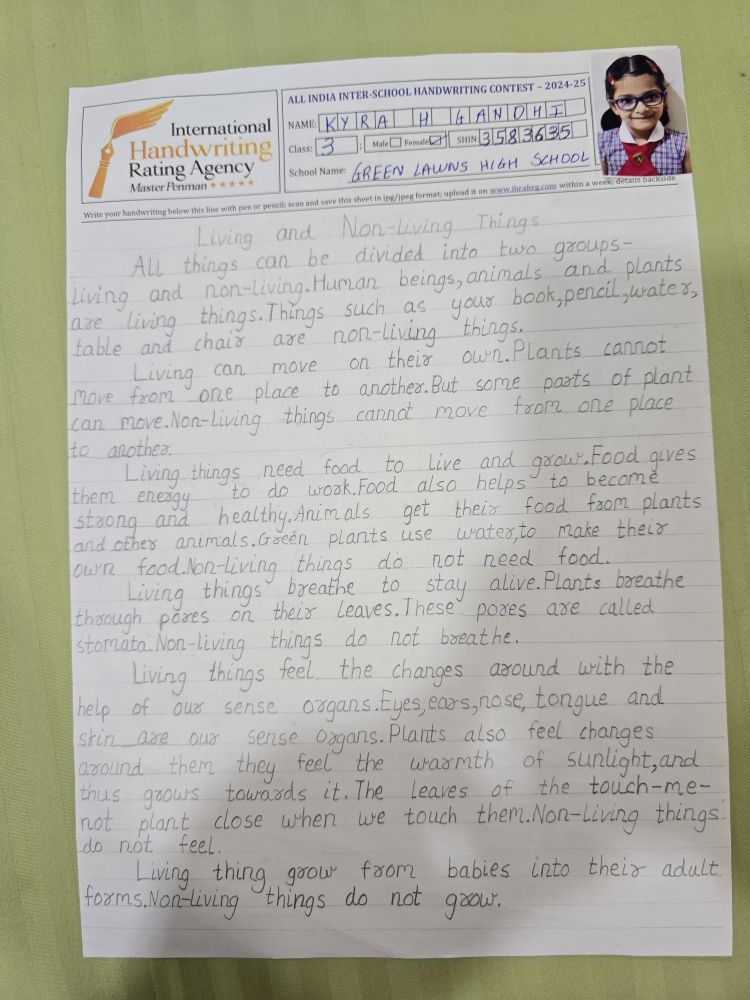 International
Handwriting
Rating Agency
Master Penman
ALL INDIA INTER-SCHOOL HANDWRITING CONTEST – 2024-25
NAME: KYRA H GANDHI
Class: 3 Male Female SHIN 3583635
School Name: GREEN LAWNS HIGH SCHOOL
Write your handwriting below this line with pen or pencil; scan and save this sheet in jpg/jpeg format; upload it on www.ihrahrg.com within a week; details backside
Living and Non-living Things
All things can be divided into two groups-
living and non-living.Human beings,animals and plants
are living things.Things such as your book,pencil,water,
table and chair are non-living things.
Living can move on their own.Plants cannot
move from one place to another.But some parts of plant
can move.Non-living things cannot move from one place
to another.
Living things need food to live and grow.Food gives
them energy to do work.Food also helps to become
strong and healthy.Animals get their food from plants
and other animals.Green plants use water,to make their
own food.Non-living things do not need food.
Living things breathe to stay alive.Plants breathe
through pores on their leaves.These pores are called
stomata.Non-living things do not breathe.
Living things feel the changes around with the
help of our sense organs.Eyes,ears,nose,tongue and
skin are our sense organs.Plants also feel changes
around them they feel the warmth of sunlight,and
thus grows towards it.The leaves of the touch-me-
not plant close when we touch them.Non-living things
do not feel.
Living thing grow from babies into their adult
forms.Non-living things do not grow.